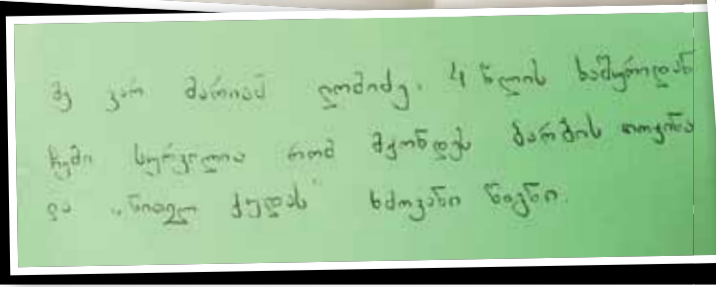 მე ვარ მარიამ ლომიძე. 4 წლის ხაშურიდან
ჩემი სურვილია რომ მქონდეს ბარბის თოჯინა
და „წითელ ქუდას“ ხმოვანი წიგნი.